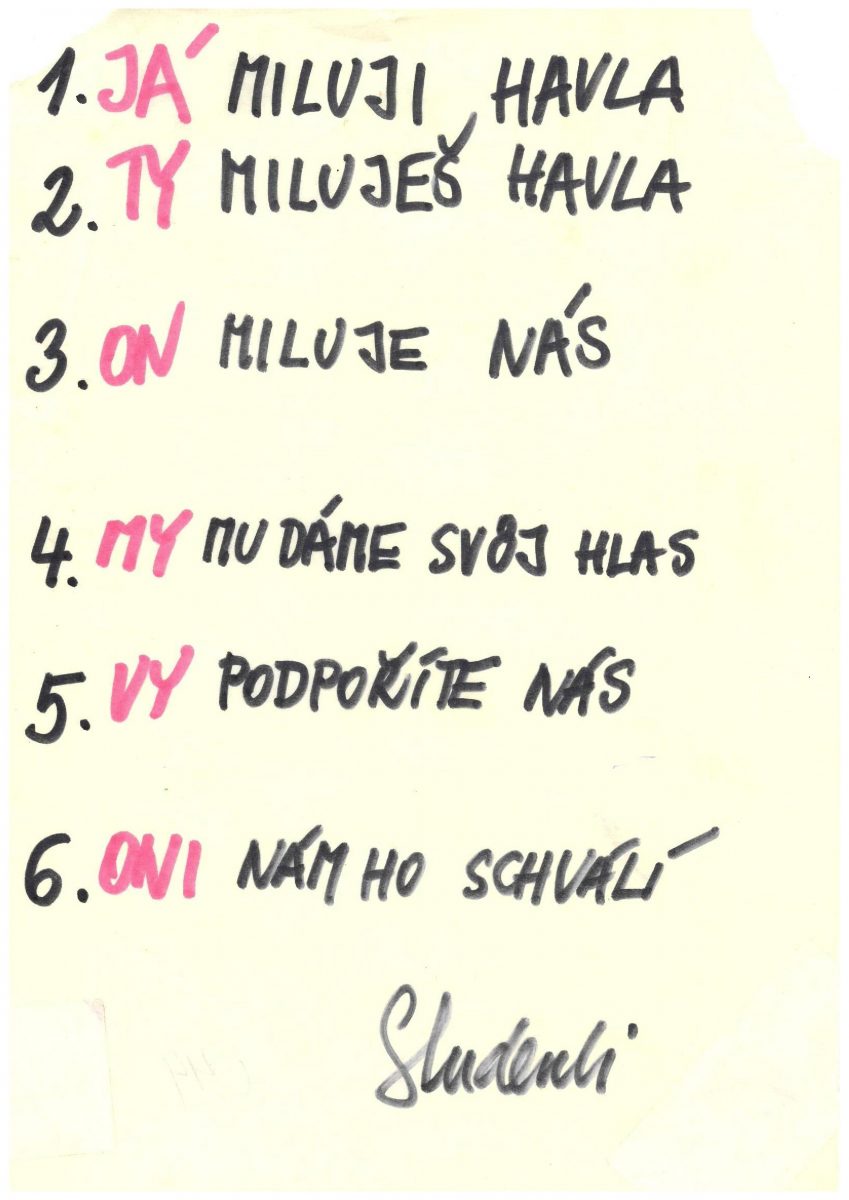 1. JÁ MILUJI HAVLA
2. TY MILUJEŠ HAVLA
3. ON MILUJE NÁS
4. MY MU DÁME SVŮJ HLAS
5. VY PODPOŘÍTE NÁS
6. ONI NÁM HO SCHVÁLÍ
Studenti